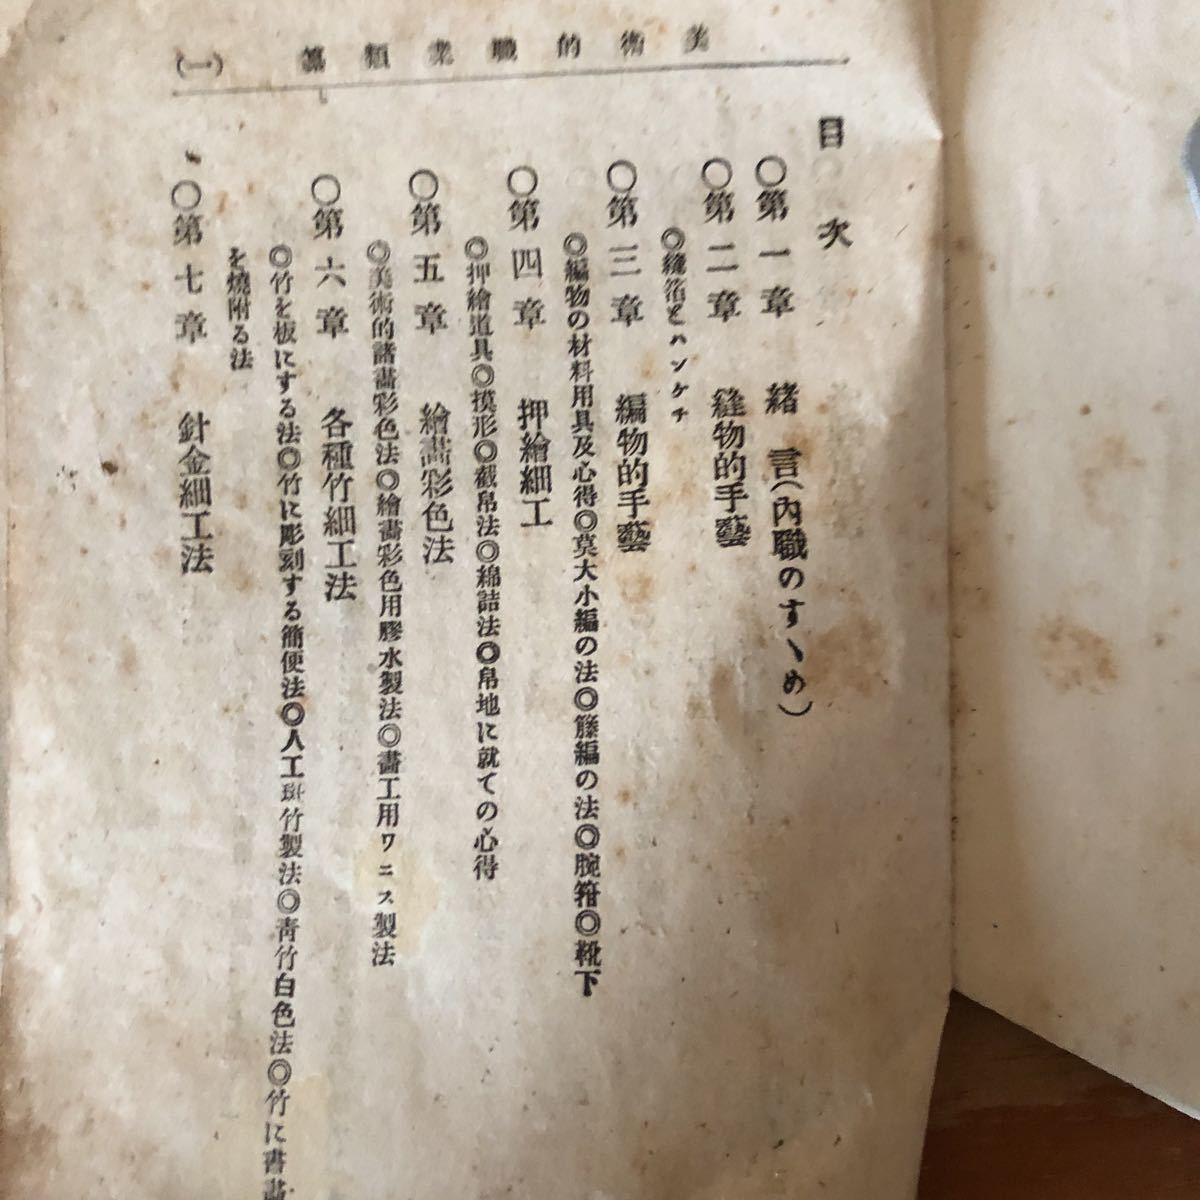 美術的職業類纂
(一)
目次
〇第一章 緒言(內職のすゝめ)
〇第二章 縫物的手藝
◎縫箔とハンケチ
〇第三章 編物的手藝
◎編物の材料用具及心得◎莫大小編の法◎籐編の法◎腕箝◎靴下
〇第四章 押繪細工
◎押繪道具◎摸形◎截帛法◎綿詰法◎帛地に就ての心得
〇第五章 繪畵彩色法
◎美術的諸畵彩色法◎繪畵彩色用膠水製法◎畵工用ワニス製法
〇第六章 各種竹細工法
◎竹を板にする法◎竹に彫刻する簡便法◎人工斑竹製法◎靑竹白色法◎竹に書畵
を燒附る法
〇第七章 針金細工法